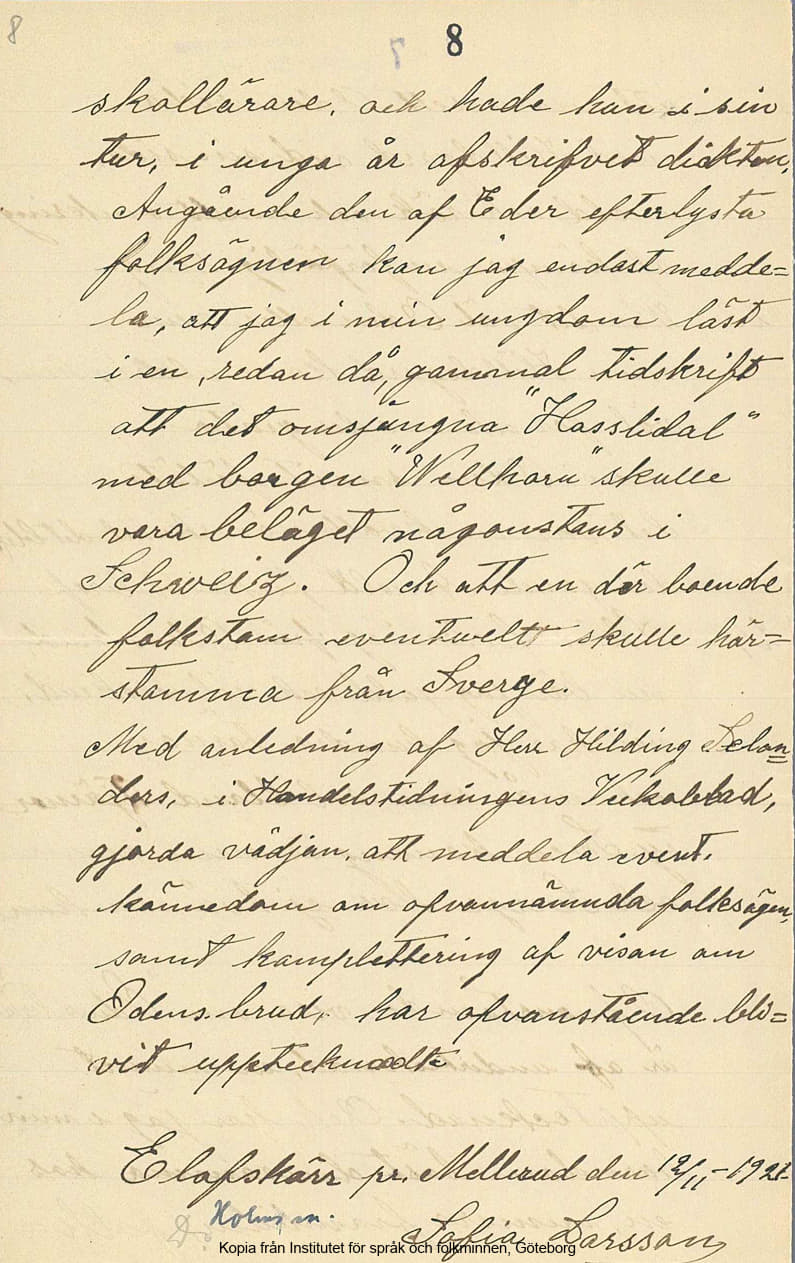 8
8
skollärare, och hade han i sin
tur, i unga år afskrifvet dikten,
Angående den af Eder efterlysta
folksägnen kan jag endast medde=
la, att jag i min ungdom läst
i en, redan då, gammal tidskrift
att det omsjungna "Hasslidal"
med borgen "Wellhorn" skulle
vara beläget någonstans i
Schweiz. Och att en där boende
folkstam eventuelt skulle här=
stamma från Sverge.
Med anledning af Herr Hilding Selan=
ders, i Handelstidningens Veckoblad,
gjorda vädjan, att meddela event.
kännedom om ofvannämnda folksägen,
samt komplettering af visan om
Odens brud, har ofvanstående bli=
vit upptecknadt
Elofskärr pr. Mellerud den 12/11-1921-
Holms sn.
Sofia Larsson
Kopia från Institutet för språk och folkminnen, Göteborg